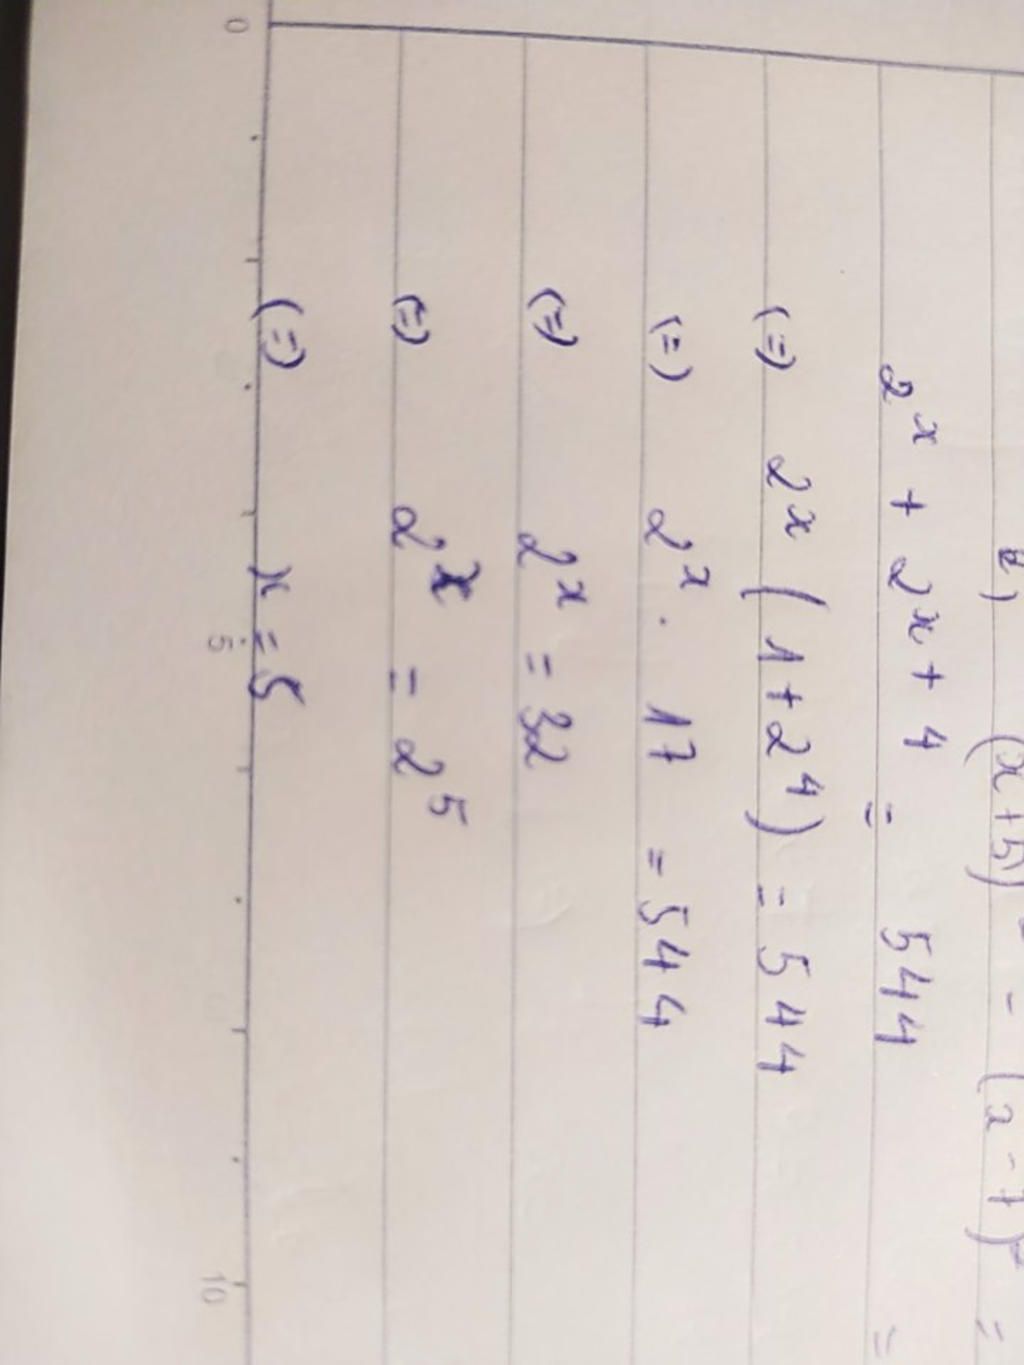 (x+5)² - (x-7)² =
2ˣ + 2ˣ⁺⁴ = 544 =
(=) 2ˣ (1+2⁴) = 544
(=) 2ˣ . 17 = 544
(=) 2ˣ = 32
(=) 2ˣ = 2⁵
(=) x = 5
0 5 10